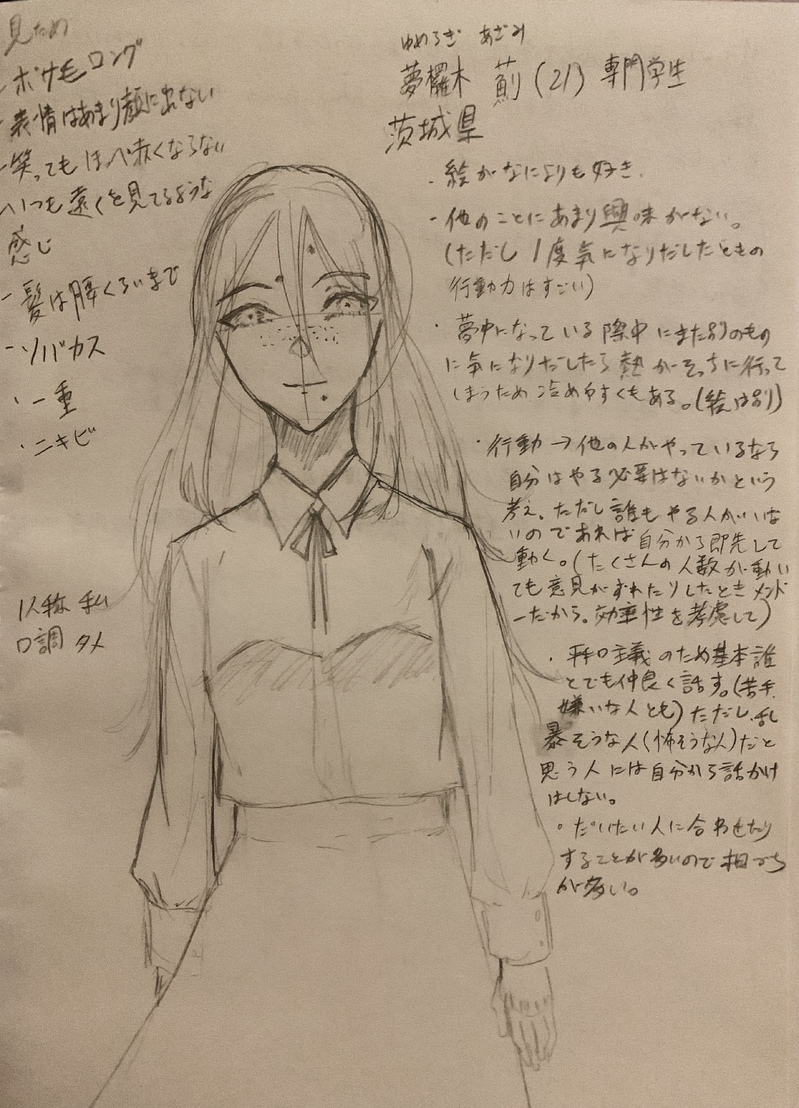 見ため
- ボサ毛ロング
- 表情はあまり顔に出ない
- 笑ってもほべ赤くならない
いつも遠くを見てるような
感じ
- 髪は腰くらいまで
- ソバカス
・一重
・ニキビ
一人称 私
口調 タメ
ゆめろぎ あざみ
夢欏木 薊 (21) 専門学生
茨城県
・絵がなによりも好き
・他のことにあまり興味がない。
(ただし1度気になりだしたときの
行動力はすごい)
・夢中になっている際中にまた別のもの
に気になりだしたら熱がそっちに行って
しまうため冷めやすくもある。(絵は別)
・行動→他の人がやっているなら
自分はやる必要はないかという
考え。ただし誰もやる人がいな
いのであれば自分から即先して
動く。(たくさんの人数が動い
ても意見がずれたりしたときメンド
ーだから。効率性を考慮して)
・平和主義のため基本誰
とでも仲良く話す。(苦手、
嫌いな人とも)ただし、乱
暴そうな人(怖そうな人)だと
思う人には自分から話かけ
はしない。
・だいたい人に合わせたり
することが多いので相づち
が多い。